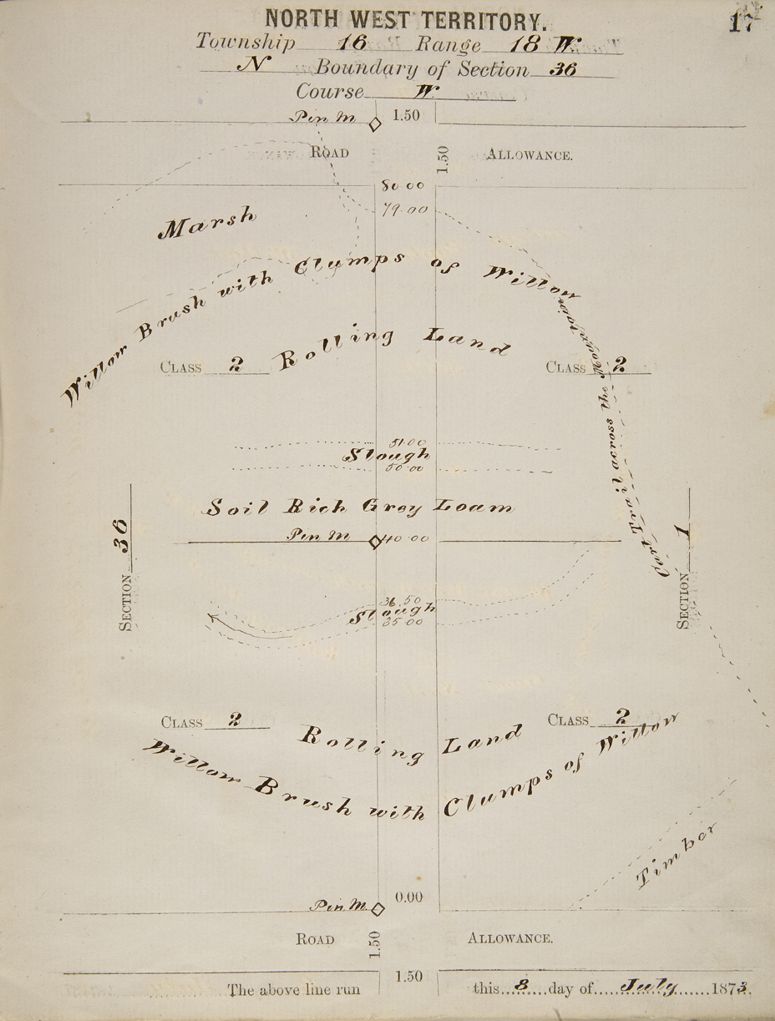 17
NORTH WEST TERRITORY.
Township 16 Range 18 W
N Boundary of Section 36
Course W
Pin M 1.50
ROAD 1.50 ALLOWANCE.
80 00
79.00
Marsh
Willow Brush with Clumps of Willow
Rolling Land
CLASS 2 CLASS 2
Cart Trail across the
51.00
Slough
50 00
Soil Rich Grey Loam
Pin M 40 00
SECTION 36 SECTION 1
36.50
Slough
35 00
CLASS 2 CLASS 2
Rolling Land
Willow Brush with Clumps of Willow
Timber
Pin M. 0.00
ROAD 1.50 ALLOWANCE.
1.50
The above line run this 8 day of July 1873.